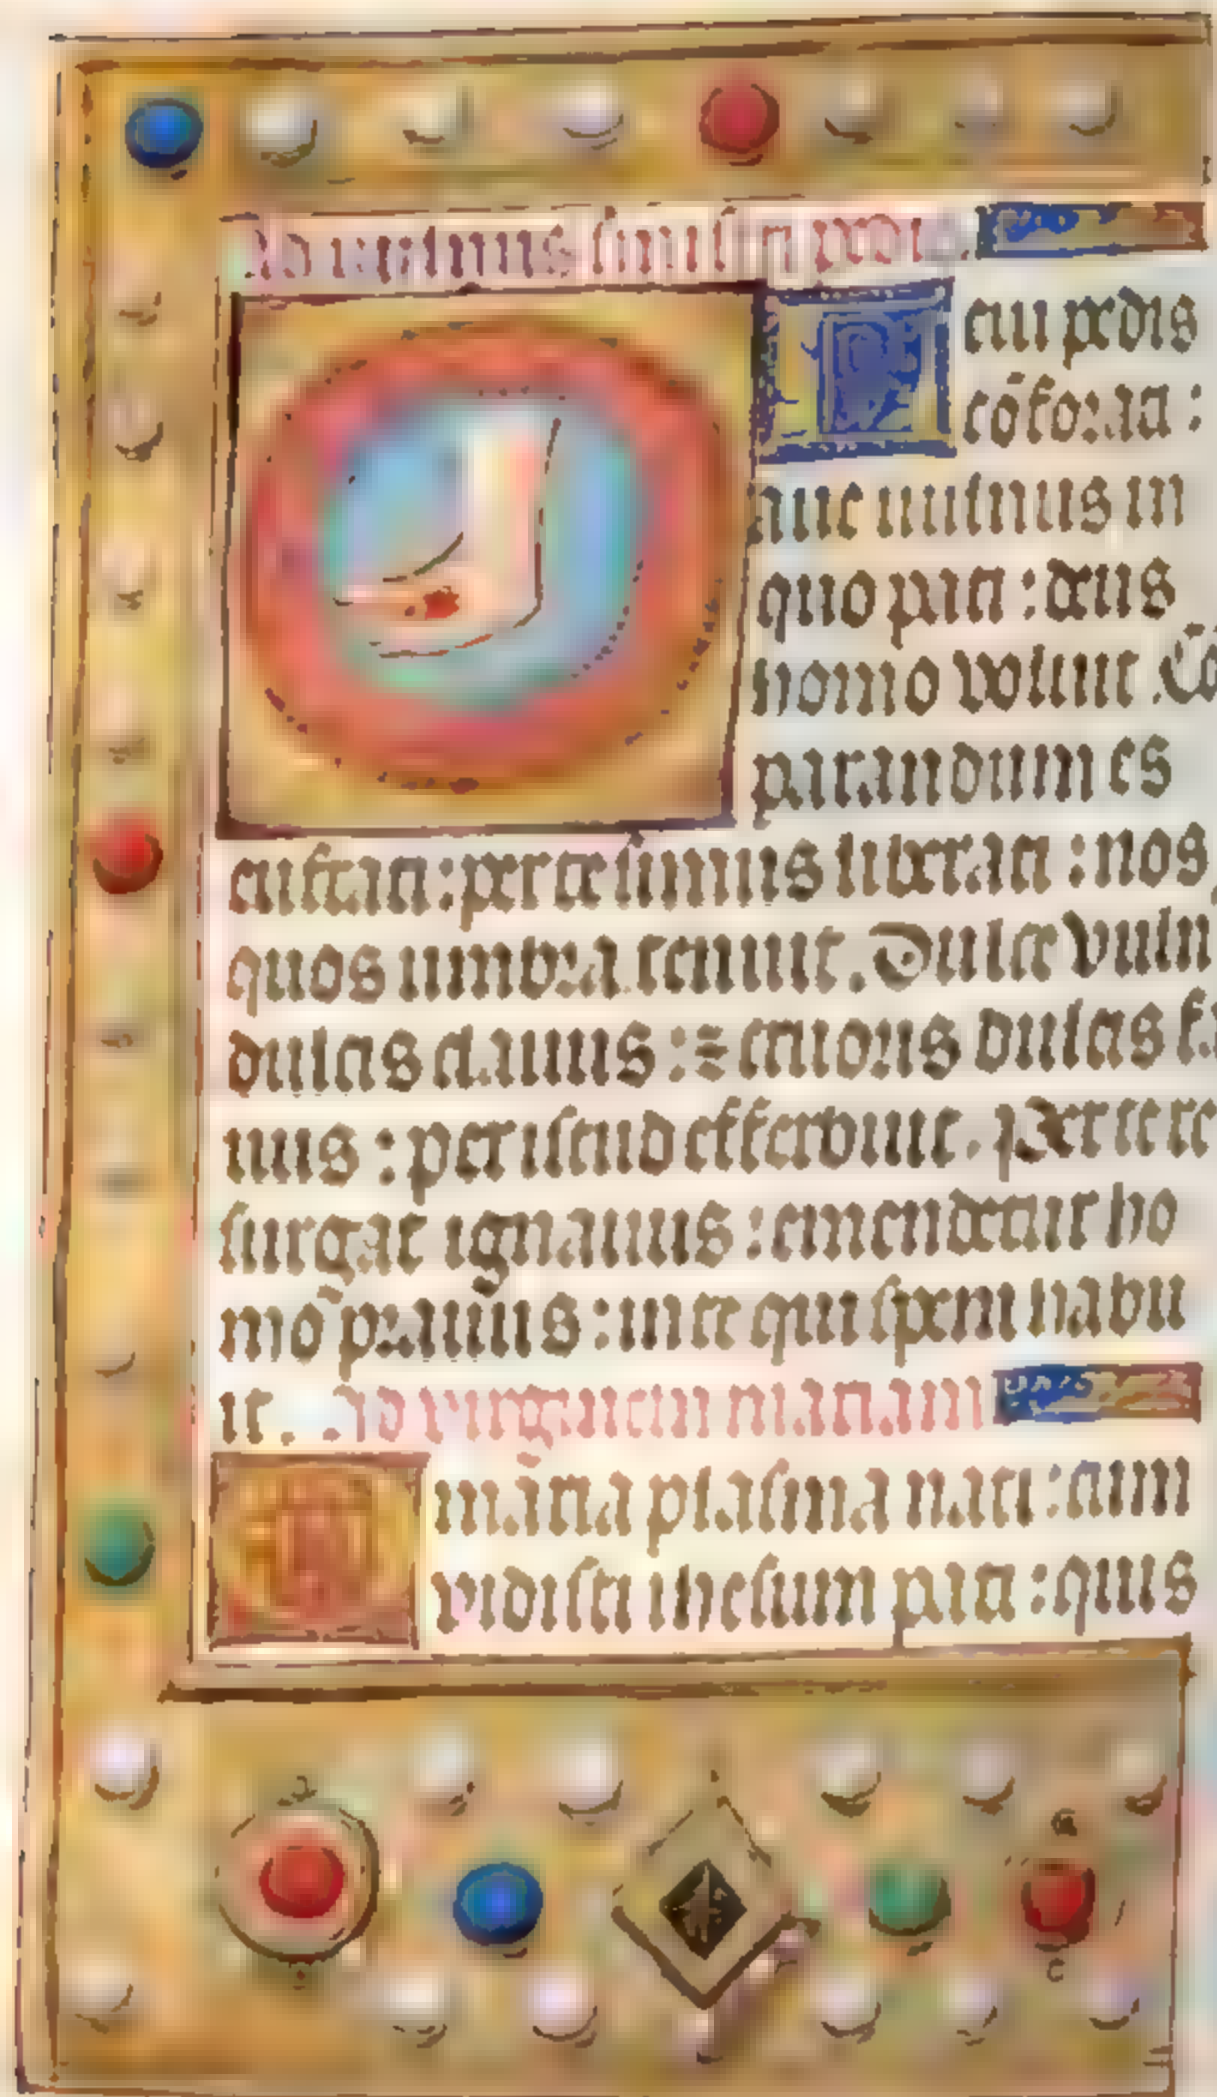 Ad vulnus sinistri pedis.
cui pedis
cōforati :
nunc uulnus in
quo pati : deus
homo voluit . Cō
parandum es
custati : per te simus liberati : nos
quos umbra tenuit . Dulce vuln
dulcis clauus : ⁊ cruoris dulcis
nus : per istud efferbuit . Per te re
surgat ignauus : emendetur ho
mō prauus : in te qui spem habu
it . Ad virginem mariam
maria plasma nati : cum
vidisti ihesum pati : quis